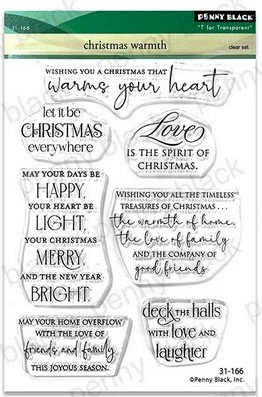 PENNY BLACK
31-166
"T for Transparent"
christmas warmth
clear set
WISHING YOU A CHRISTMAS THAT
warms your heart
let it be
CHRISTMAS
everywhere
Love
IS THE SPIRIT OF
CHRISTMAS.
MAY YOUR DAYS BE
HAPPY,
YOUR HEART BE
LIGHT,
YOUR CHRISTMAS
MERRY,
AND THE NEW YEAR
BRIGHT.
WISHING YOU ALL THE TIMELESS
TREASURES OF CHRISTMAS...
the warmth of home,
the love of family
AND THE COMPANY OF
good friends.
MAY YOUR HOME OVERFLOW
WITH THE LOVE OF
friends and family
THIS JOYOUS SEASON.
deck the halls
WITH LOVE AND
laughter
31-166
©Penny Black, Inc.
penny black